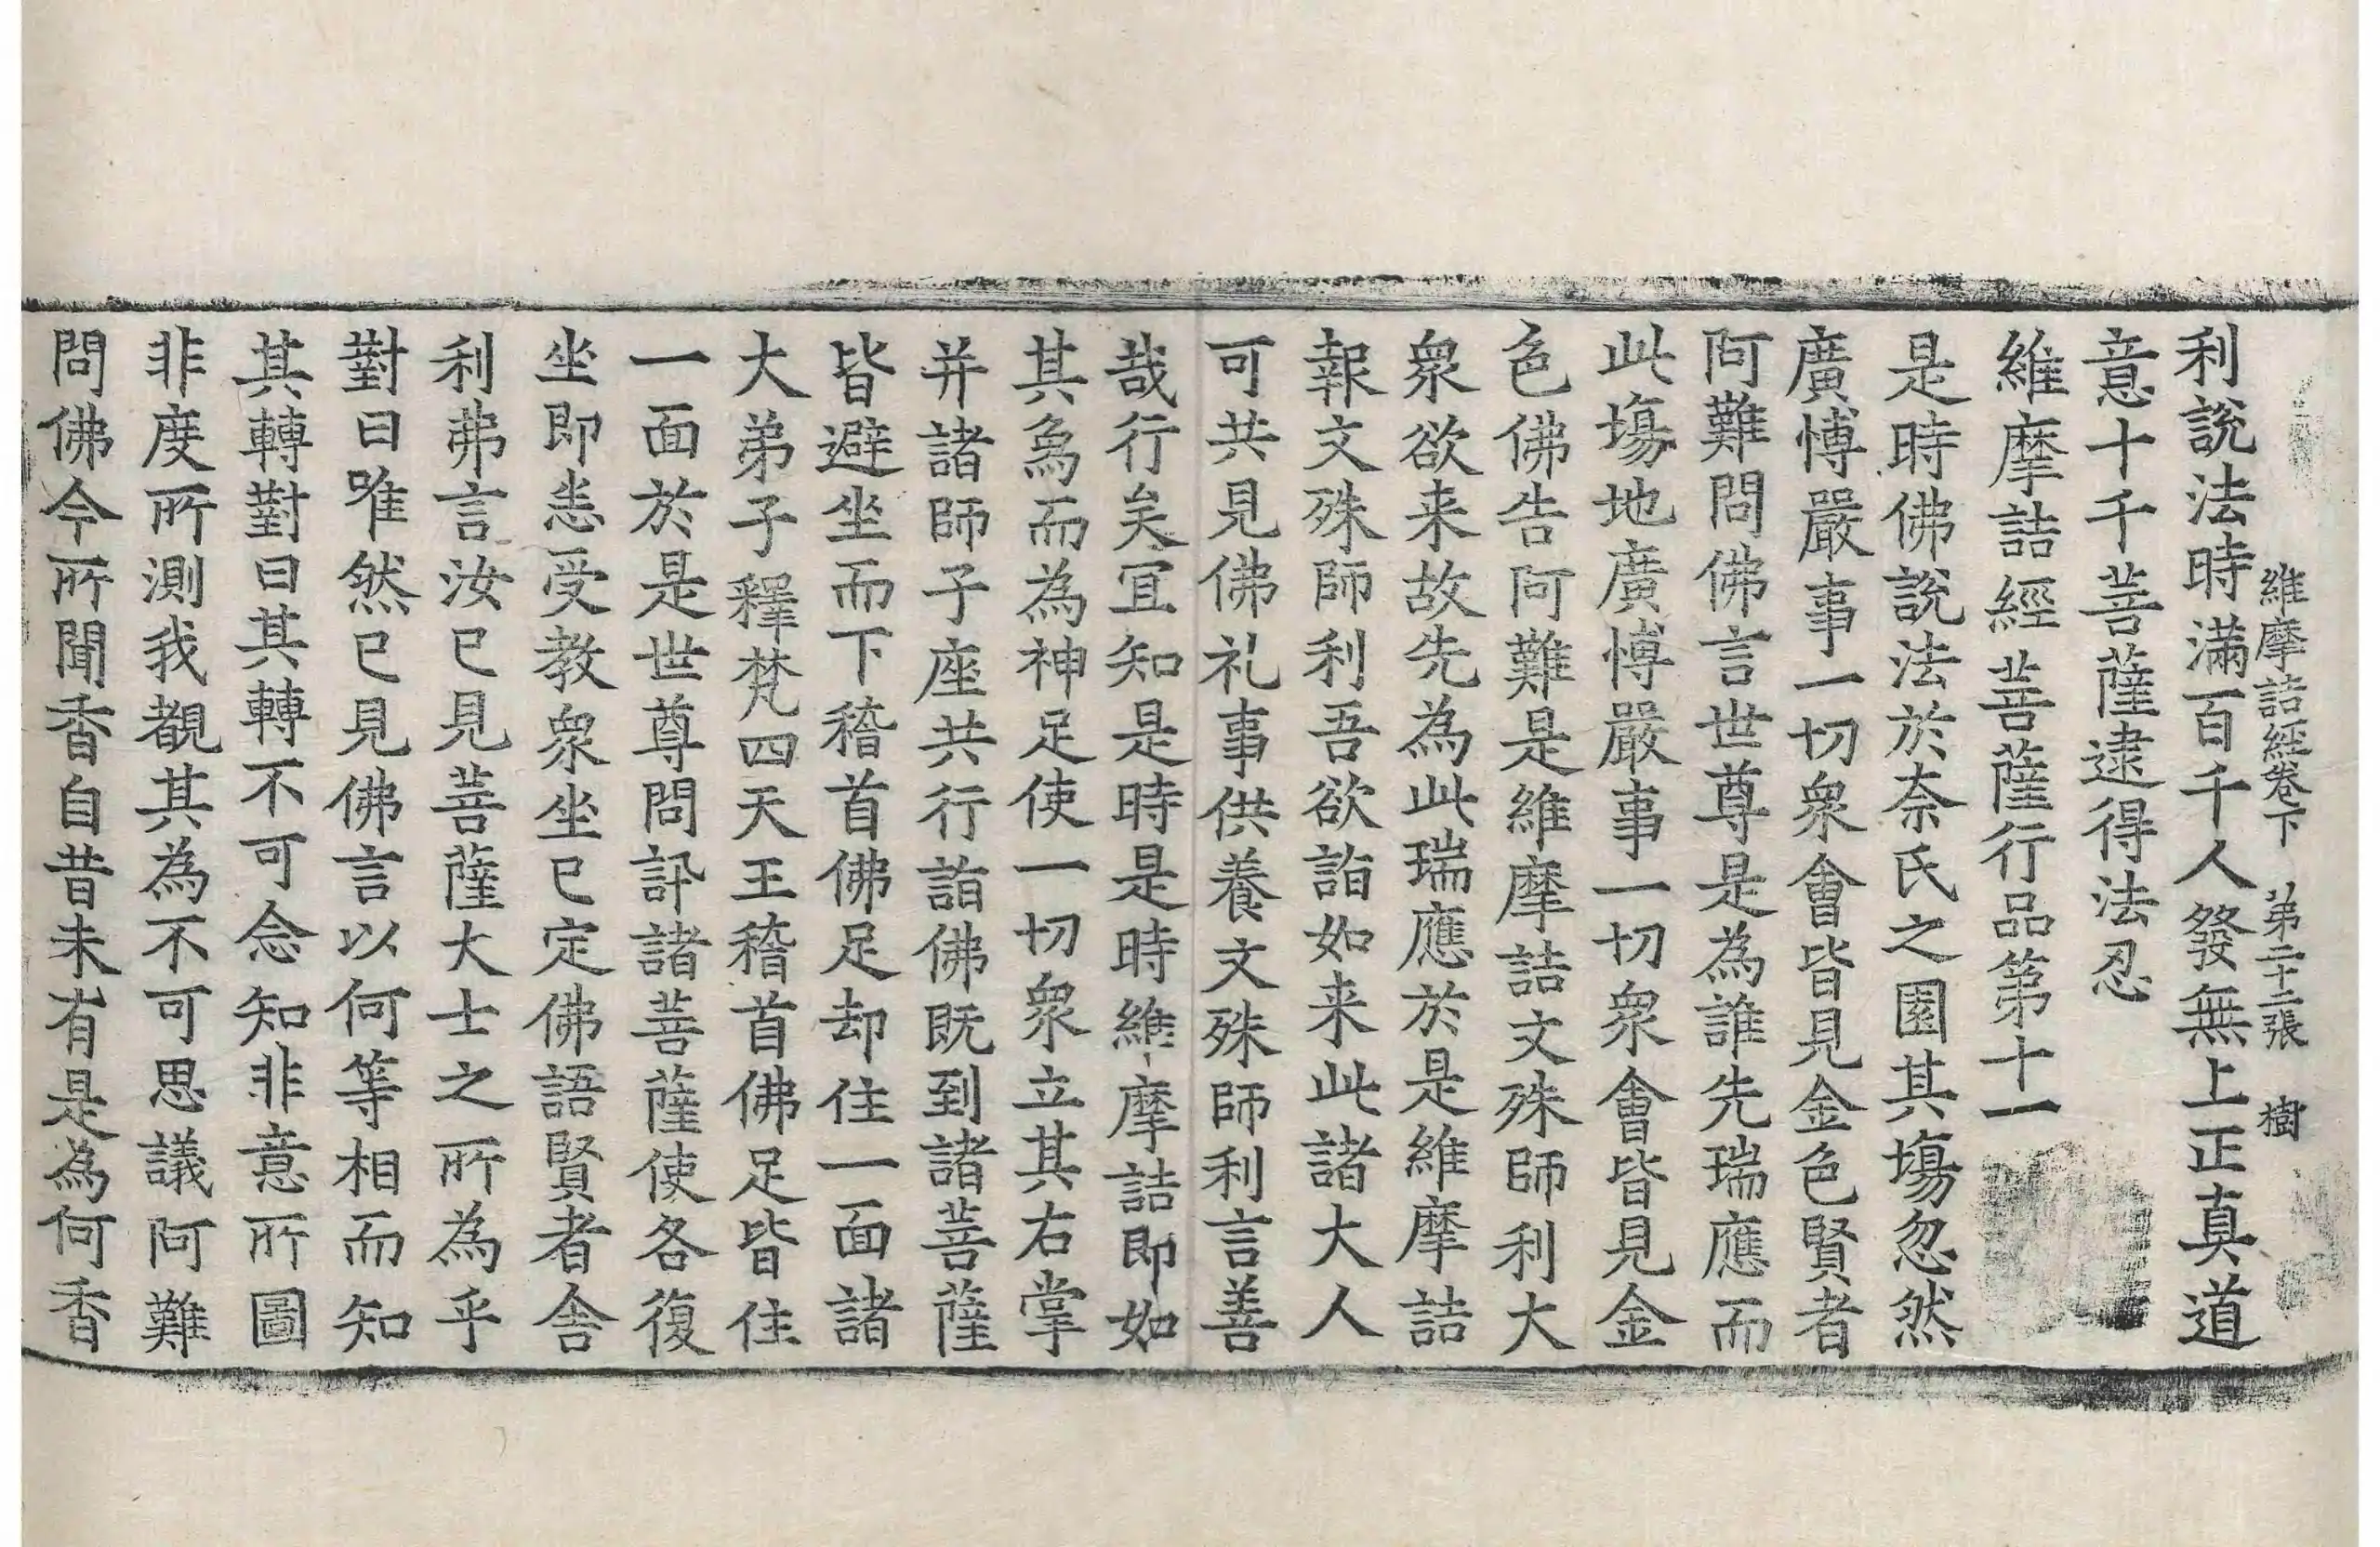 維摩詰經卷下 第二十二張 樹
利說法時滿百千人發無上正真道
意十千菩薩逮得法忍
維摩詰經菩薩行品第十一
是時佛說法於柰氏之園其場忽然
廣愽嚴事一切衆會皆見金色賢者
阿難問佛言世尊是為誰先瑞應而
此場地廣愽嚴事一切衆會皆見金
色佛告阿難是維摩詰文殊師利大
衆欲来故先為此瑞應於是維摩詰
報文殊師利吾欲詣如来此諸大人
可共見佛礼事供養文殊師利言善
哉行矣宜知是時是時維摩詰即如
其為而為神足使一切衆立其右掌
并諸師子座共行詣佛既到諸菩薩
皆避坐而下稽首佛足却住一面諸
大弟子釋梵四天王稽首佛足皆住
一面於是世尊問訊諸菩薩使各復
坐即恚受教衆坐已定佛語賢者舍
利弗言汝已見菩薩大士之所為乎
對曰唯然已見佛言以何等相而知
其轉對曰其轉不可念知非意所圖
非度所測我覩其為不可思議阿難
問佛今所聞香自昔未有是為何香